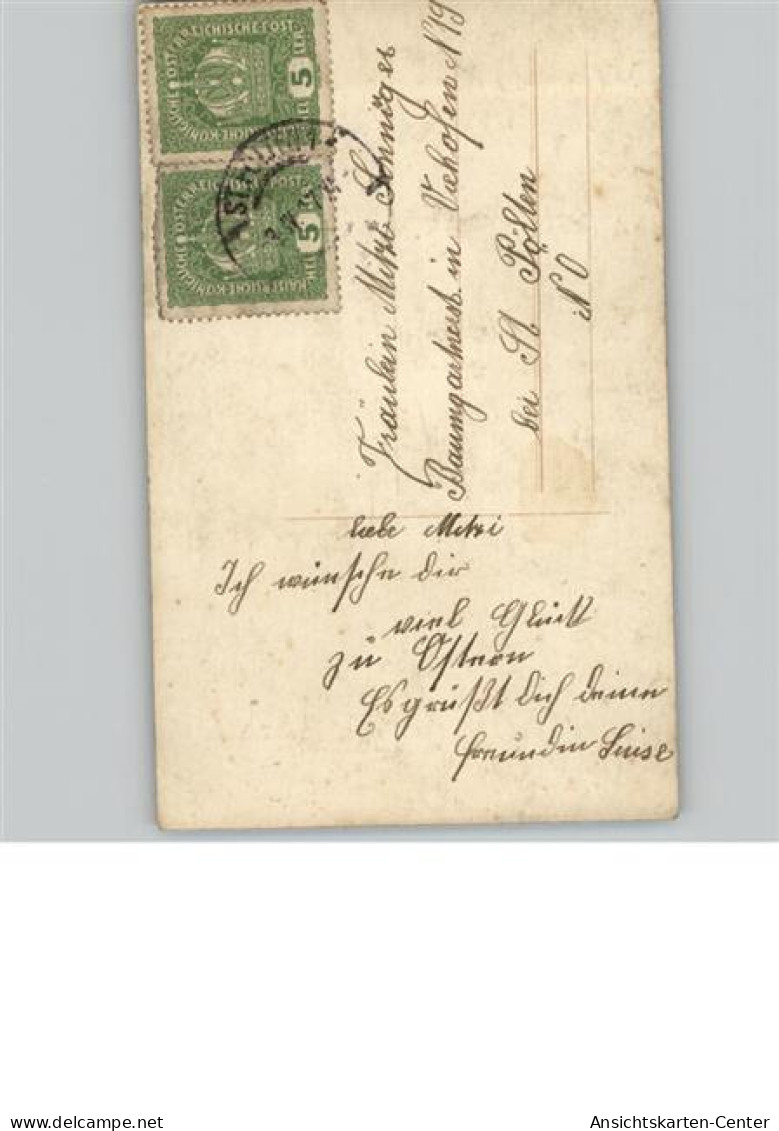 KAISERLICHE KÖNIGLICHE ÖSTERREICHISCHE POST
5 HELLER
KAISERLICHE KÖNIGLICHE ÖSTERREICHISCHE POST
5 HELLER
Fräulein Mitzi
Baumgartnerst. in Viehofen N 19
bei St Pölten
N O
liebe Mitzi
Ich wünsche dir
viel Glück
zu Ostern
Es grüßt dich deine
freundin Luise
Ansichtskarten-Center